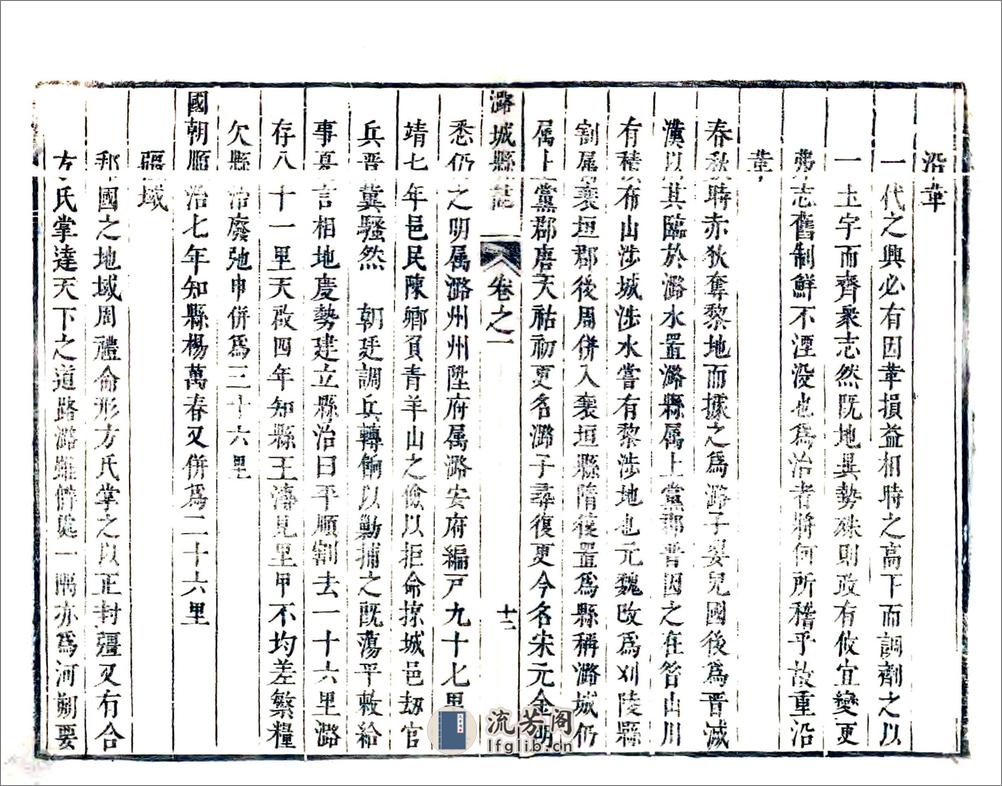 沿革
一代之興必有因革損益相時之高下而調劑之以
一土字而齊衆志然既地異勢殊則政有攸宜變更
弗志舊制鮮不湮没也爲治者將何所稽乎故重沿
革
春秋時赤狄奪黎地而據之爲潞子嬰兒國後爲晋滅
漢以其臨於潞水置潞縣属上黨郡晋因之在昝山川
有積布山涉城涉水嘗有黎涉地也元魏改爲刈陵縣
割属襄垣郡後周併入襄垣縣隋復置爲縣稱潞城仍
属上黨郡唐天祐初更名潞子尋復更今名宋元金
潞城縣誌
卷之一
十二
悉仍之明属潞州州陞府属潞安府編戸九十七里
靖七年邑民陳卿負青羊山之險以拒命掠城邑刼官
兵晋冀騷然 朝廷調兵轉餉以勦捕之既蕩平敕給
事夏言相地度勢建立縣治曰平順割去一十六里潞
存八十一里天啟四年知縣王濤見里甲不均差繁糧
欠縣治廢弛申併爲三十六里
國朝順治七年知縣楊萬春又併爲二十六里
疆域
邦國之地域周禮侖形方氏掌之以正封疆又有合
方氏掌達天下之道路潞雖僻處一隅亦爲河朔要
流芳阁
lfglib.cn